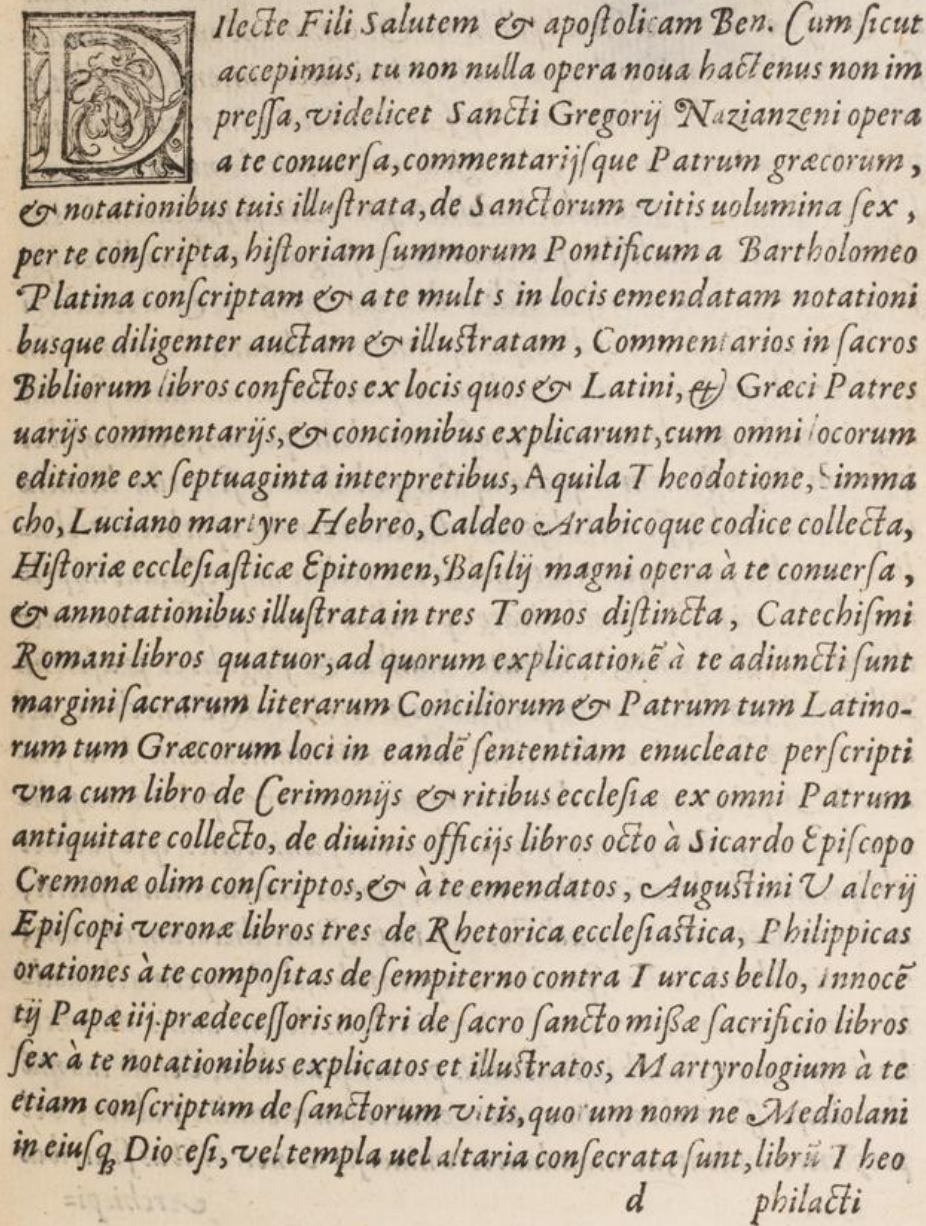 DIlecte Fili Salutem & apostolicam Ben. Cum sicut
accepimus, tu non nulla opera noua hactenus non im
pressa, videlicet Sancti Gregorij Nazianzeni opera
a te conuersa, commentarijsque Patrum græcorum,
& notationibus tuis illustrata, de Sanctorum vitis uolumina sex,
per te conscripta, historiam summorum Pontificum a Bartholomeo
Platina conscriptam & a te mult s in locis emendatam notationi
busque diligenter auctam & illustratam, Commentarios in sacros
Bibliorum libros confectos ex locis quos & Latini, & Græci Patres
uarijs commentarijs, & concionibus explicarunt, cum omni locorum
editione ex septuaginta interpretibus, Aquila Theodotione, Simma
cho, Luciano martyre Hebreo, Caldeo Arabicoque codice collecta,
Historiæ ecclesiasticæ Epitomen, Basilij magni opera à te conuersa,
& annotationibus illustrata in tres Tomos distincta, Catechismi
Romani libros quatuor, ad quorum explicationẽ à te adiuncti sunt
margini sacrarum literarum Conciliorum & Patrum tum Latino-
rum tum Græcorum loci in eandẽ sententiam enucleate perscripti
vna cum libro de Cerimonijs & ritibus ecclesiæ ex omni Patrum
antiquitate collecto, de diuinis officijs libros octo à Sicardo Episcopo
Cremonæ olim conscriptos, & à te emendatos, Augustini Valerij
Episcopi veronæ libros tres de Rhetorica ecclesiastica, Philippicas
orationes à te compositas de sempiterno contra Turcas bello, Innocẽ
tij Papæ iij. prædecessoris nostri de sacro sancto mißæ sacrificio libros
sex à te notationibus explicatos et illustratos, Martyrologium à te
etiam conscriptum de sanctorum vitis, quorum nom ne Mediolani
in eiusq; Diocesi, vel templa uel altaria consecrata sunt, librũ Theo
d philacti